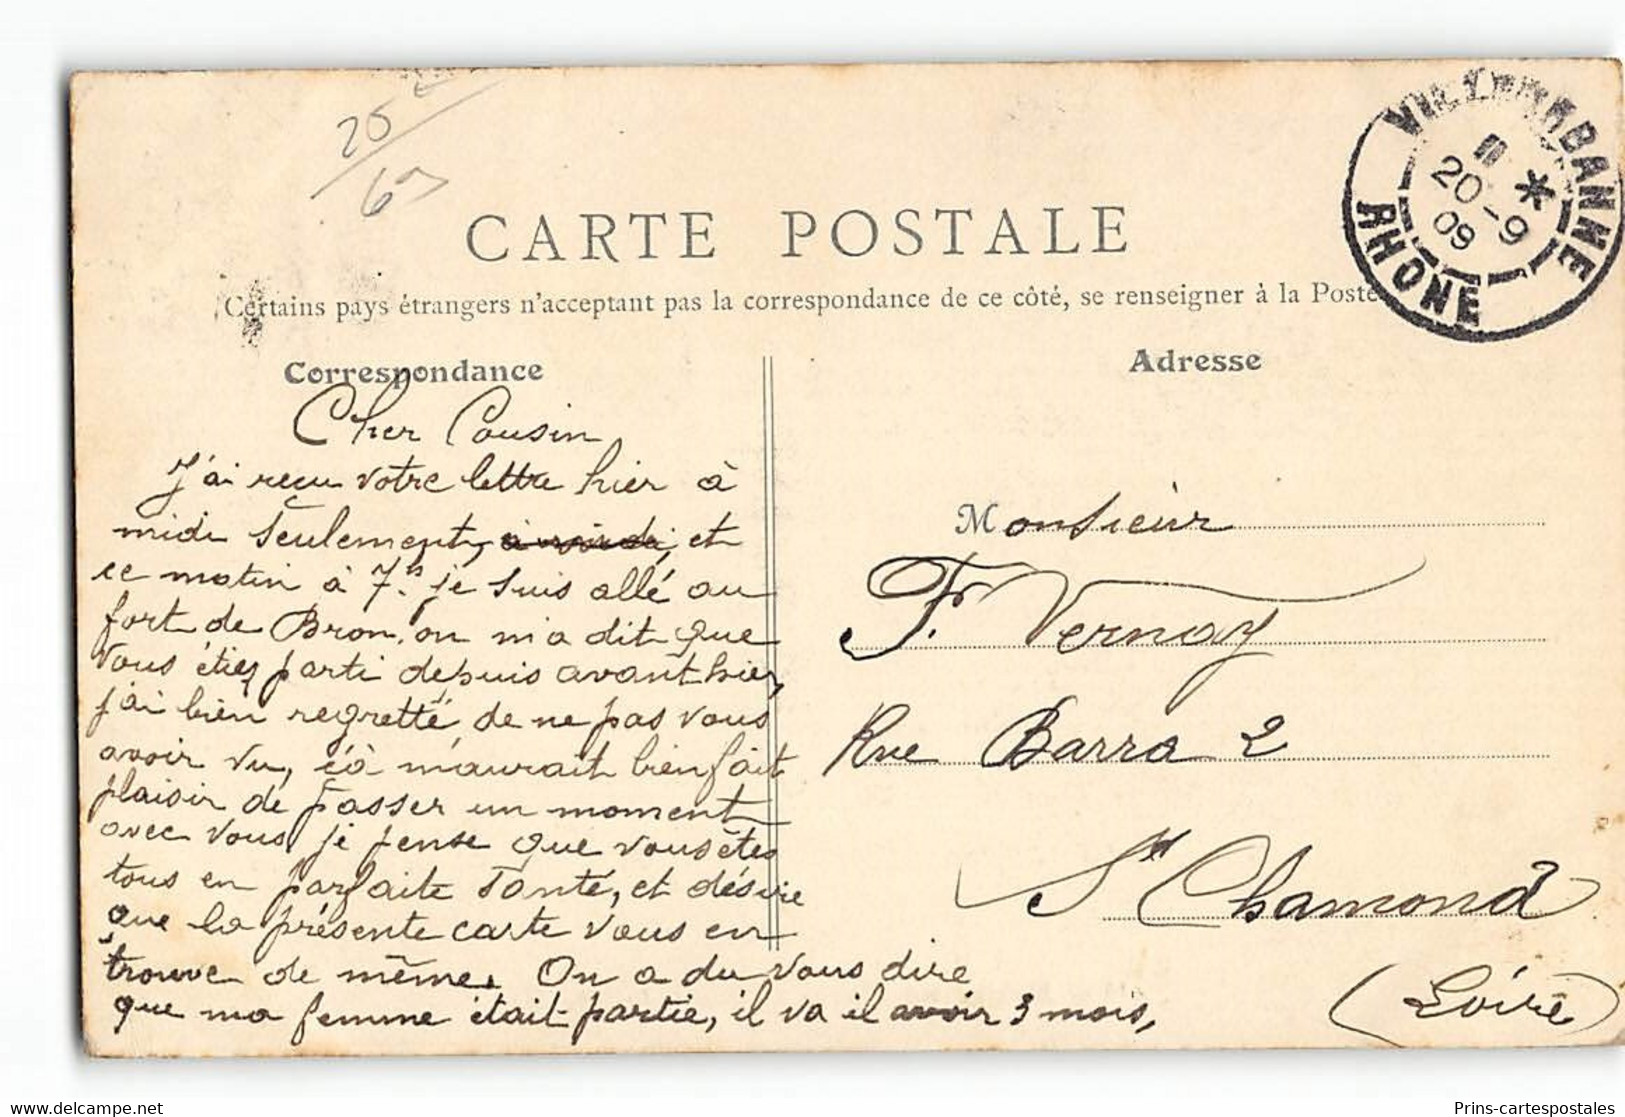 25
67
CARTE POSTALE
Certains pays étrangers n'acceptant pas la correspondance de ce côté, se renseigner à la Poste
VILLEURBANNE
20-9
09
RHONE
Correspondance
Cher Cousin
J'ai reçu votre lettre hier à
midi seulement, et
ce matin à 7h. je suis allé au
fort de Bron, on m'a dit que
vous étiez parti depuis avant hier,
j'ai bien regretté, de ne pas vous
avoir vu, çà m'aurait bien fait
plaisir de passer un moment
avec vous, je pense que vous êtes
tous en parfaite santé, et désire
que la présente carte vous en
trouve de même. On a du vous dire
que ma femme était partie, il va il avoir 3 mois,
Adresse
Monsieur
F. Vernay
Rue Barra 2
St Chamond
(Loire)
delcampe.net
Prins-cartespostales